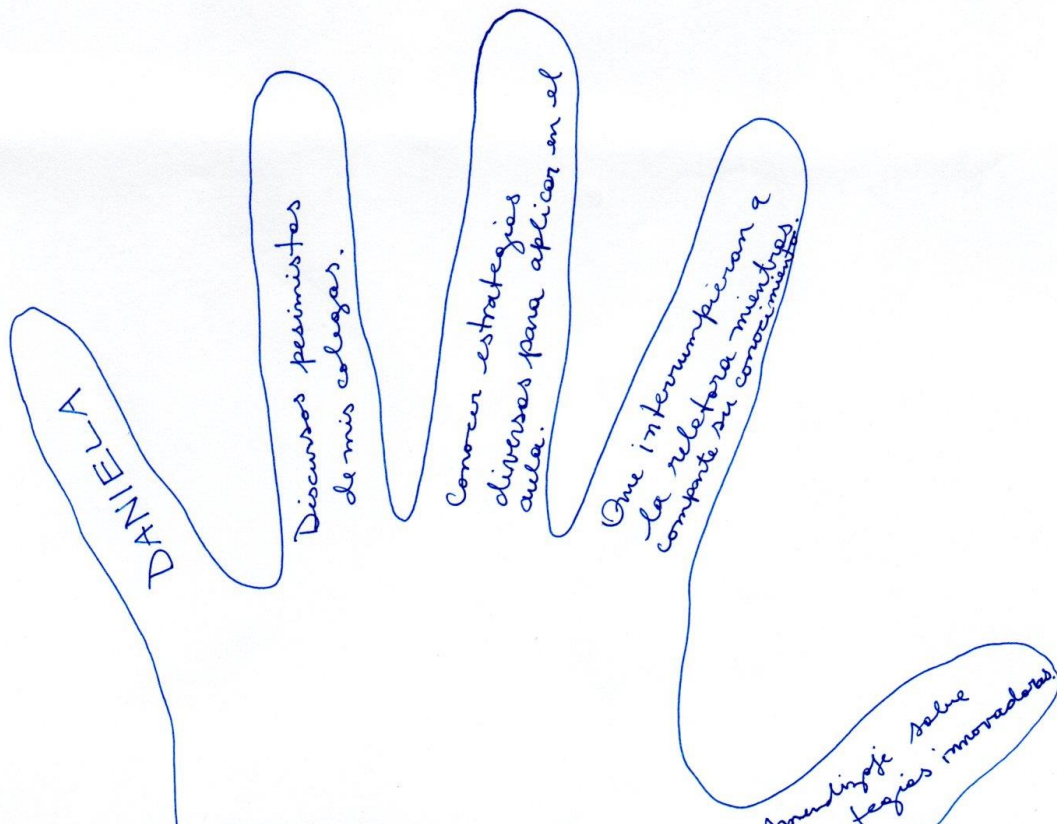 DANIELA
Discursos pesimistas
de mis colegas.
Conocer estrategias
diversas para aplicar en el
aula.
Que interrumpieran a
la relatora mientras
comparte su conocimiento.
Aprendizaje sobre
tegias innovadoras.